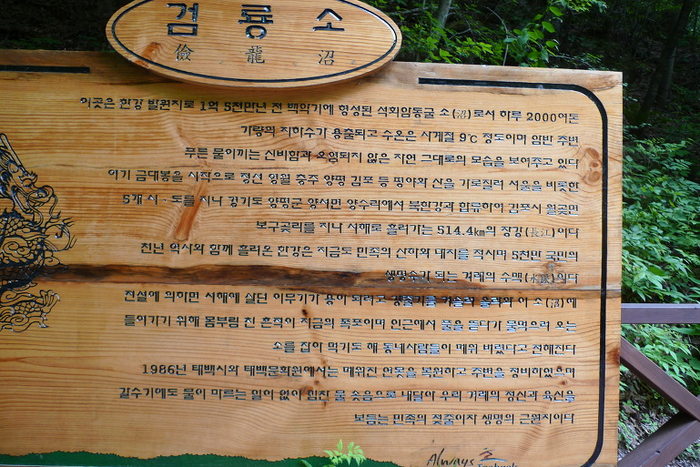 검룡소
儉龍沼
이곳은 한강 발원지로 1억 5천만년 전 백악기에 형성된 석회암동굴 소(沼)로서 하루 2000여톤
가량의 지하수가 용출되고 수온은 사계절 9℃ 정도이며 암반 주변
푸른 물이끼는 신비함과 오염되지 않은 자연 그대로의 모습을 보여주고 있다
여기 금대봉을 시작으로 정선 영월 충주 양평 김포 등 평야와 산을 가로질러 서울을 비롯한
5개 시·도를 지나 경기도 양평군 양서면 양수리에서 북한강과 합류하여 김포시 월곶면
보구곶리를 지나 서해로 흘러가는 514.4㎞의 장강(長江)이다
천년 역사와 함께 흘러온 한강은 지금도 민족의 산하와 대지를 적시며 5천만 국민의
생명수가 되는 겨레의 수맥(水脈)이다
전설에 의하면 서해에 살던 이무기가 용이 되려고 강줄기를 거슬러 올라와 이 소(沼)에
들어가기 위해 몸부림 친 흔적이 지금의 폭포이며 인근에서 풀을 뜯다가 물먹으러 오는
소를 잡아 먹기도 해 동네사람들이 메워 버렸다고 전해진다
1986년 태백시와 태백문화원에서는 메워진 연못을 복원하고 주변을 정비하였으며
갈수기에도 물이 마르는 일이 없이 힘찬 물 솟음으로 내달아 우리 겨레의 정신과 육신을
보듬는 민족의 젖줄이자 생명의 근원지이다
Always